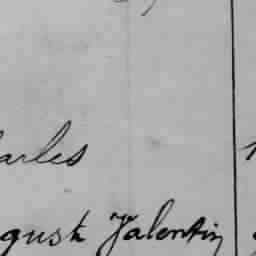 arles
gust Valentin